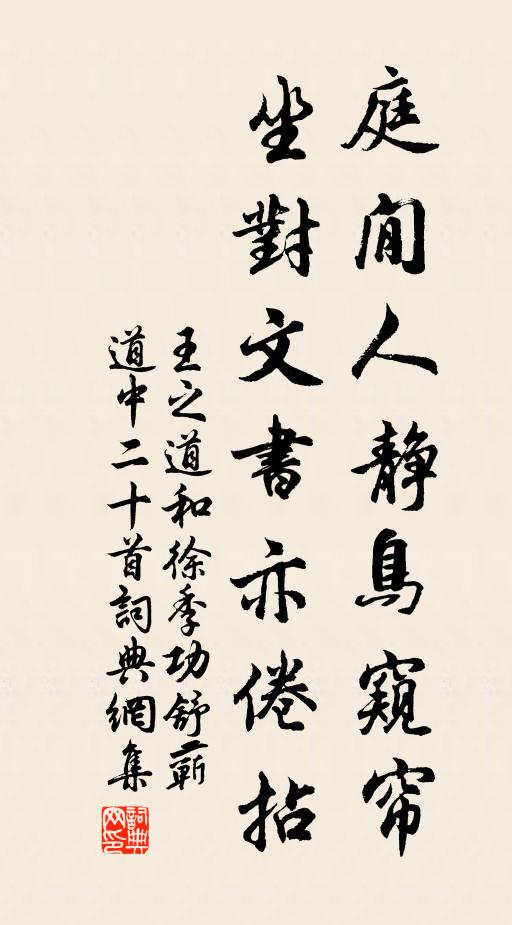 庭閒人靜鳥窺帘
坐對文書亦倦拈
王之道和徐季功舒蘄
道中二十首詞典網集
詞典网印